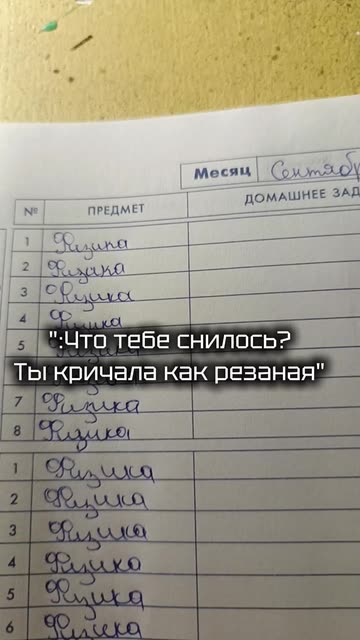 Месяц Сентябр
№ ПРЕДМЕТ ДОМАШНЕЕ ЗАД
1 Физика
2 Физика
3 Физика
4 Физика
5
":Что тебе снилось?
Ты кричала как резаная"
7 Физика
8 Физика
1 Физика
2 Физика
3 Физика
4 Физика
5 Физика
6 Физика